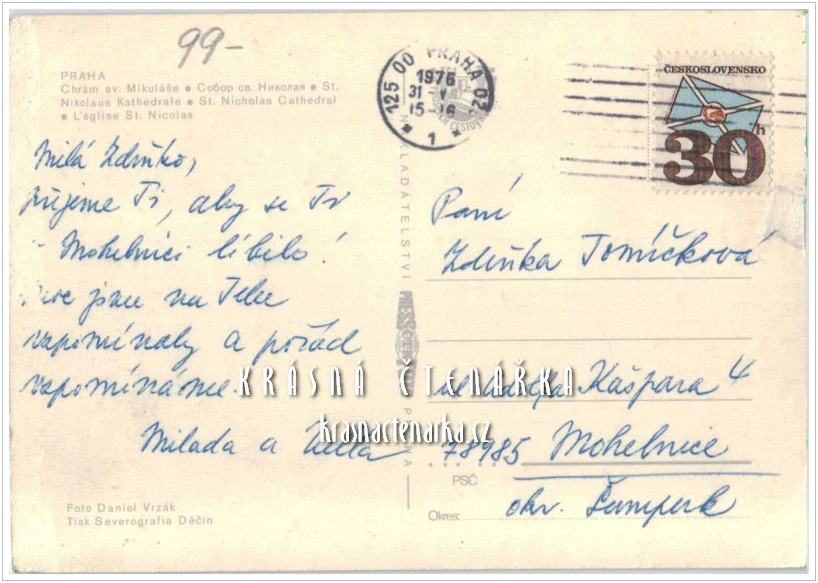 99-
PRAHA
Chrám sv. Mikuláše • Собор св. Николая • St.
Nikolaus Kathedrale • St. Nicholas Cathedral
• L'église St. Nicolas
Milá Zdeňko,
přejeme Ti, aby se Ti
v Mohelnici líbilo!
Moc jsme na Tebe
vzpomínaly a pořád
vzpomínáme.
Milada a
Foto Daniel Vrzák
Tisk Severografia Děčín
125 00 PRAHA 02
1976
31 V
15-16
1
NAKLADATELSTVÍ
PRAHA
ČESKOSLOVENSKO
30h
Paní
Zdeňka Tomíčková
ul. Adolfa Kašpara 4
78985 Mohelnice
PSČ
Okres:
okr. Šumperk
KRÁSNÁ ČTENÁŘKA
krasnactenarka.cz